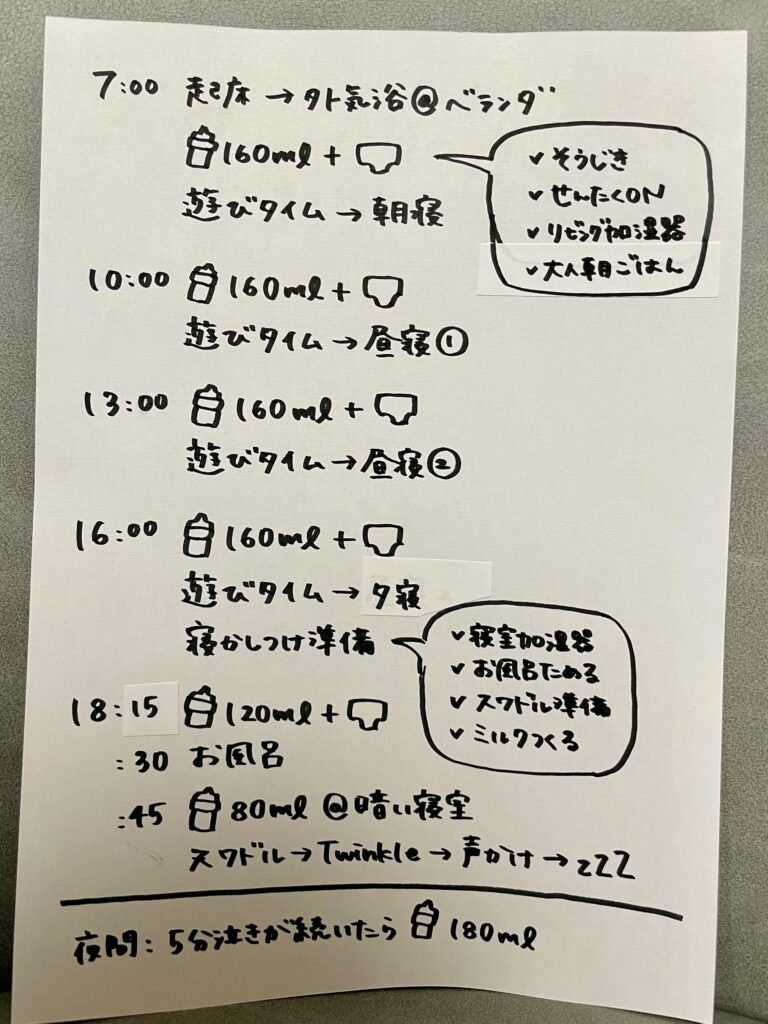 7:00 起床→外気浴@ベランダ
160ml+
✓そうじき
✓せんたくON
✓リビング加湿器
✓大人朝ごはん
遊びタイム→朝寝
10:00 160ml+
遊びタイム→昼寝①
13:00 160ml+
遊びタイム→昼寝②
16:00 160ml+
遊びタイム→夕寝
寝かしつけ準備
✓寝室加湿器
✓お風呂ためる
✓スワドル準備
✓ミルクつくる
18:15 120ml+
:30 お風呂
:45 80ml @暗い寝室
スワドル→Twinkle→声かけ→zzz
夜間: 5分泣きが続いたら 180ml